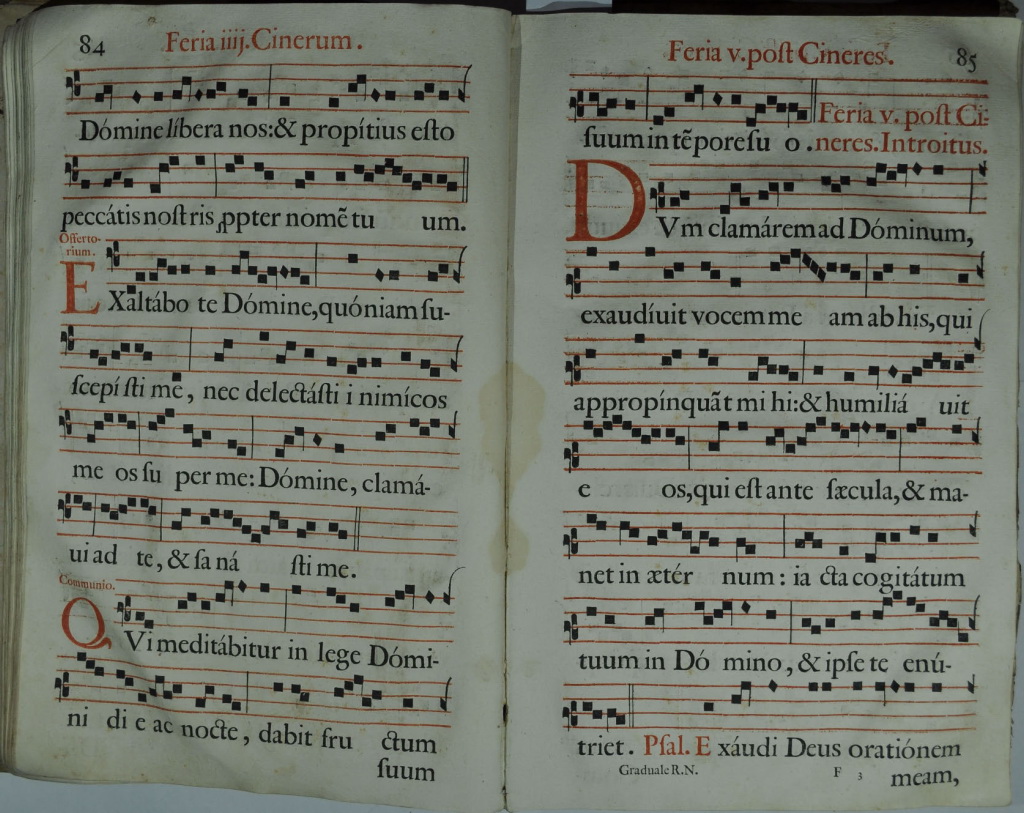 84 Feria iiij. Cinerum.
Dómine líbera nos: & propítius eſto
peccátis noſtris, ꝓpter nomẽ tu um.
Offerto-
rium.
EXaltábo te Dómine, quóniam ſu-
ſcepíſti me, nec delectáſti inimícos
me os ſu per me: Dómine, clamá-
ui ad te, & ſa ná ſti me.
Communio.
QVi meditábitur in lege Dómi-
ni di e ac nocte, dabit fru ctum
ſuum
Feria v. poſt Cineres. 85
ſuum in tẽpore ſu o. Feria v. poſt Ci-
neres. Introitus.
DVm clamárem ad Dóminum,
exaudíuit vocem me am ab his, qui
appropínquãt mi hi: & humiliá uit
e os, qui eſt ante ſæcula, & ma-
net in ætér num: ia cta cogitátum
tuum in Dó mino, & ipſe te enú-
triet. Pſal. E xáudi Deus oratiónem
Graduale R.N. F 3 meam,